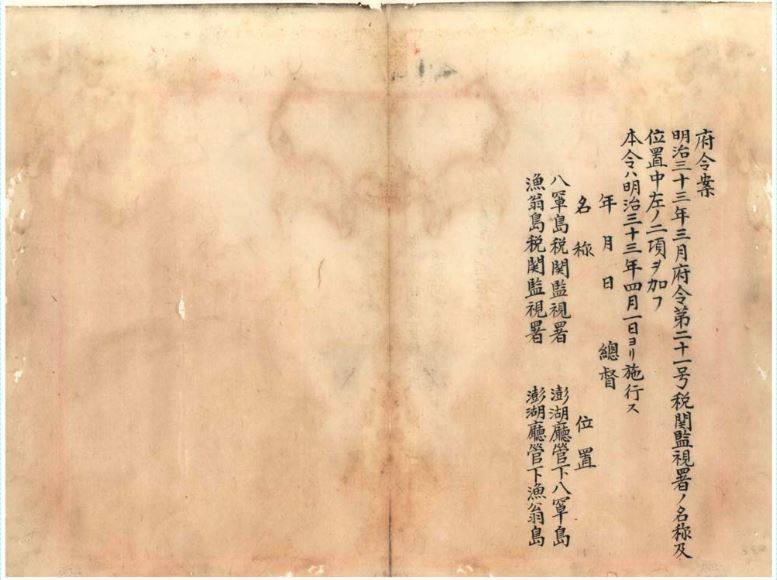 府令案
明治三十三年三月府令第二十一号税関監視署ノ名称及
位置中左ノ二項ヲ加フ
本令ハ明治三十三年四月一日ヨリ施行ス
年月日 總督
名称 位置
八罩島税関監視署 澎湖廳管下八罩島
漁翁島税関監視署 澎湖廳管下漁翁島